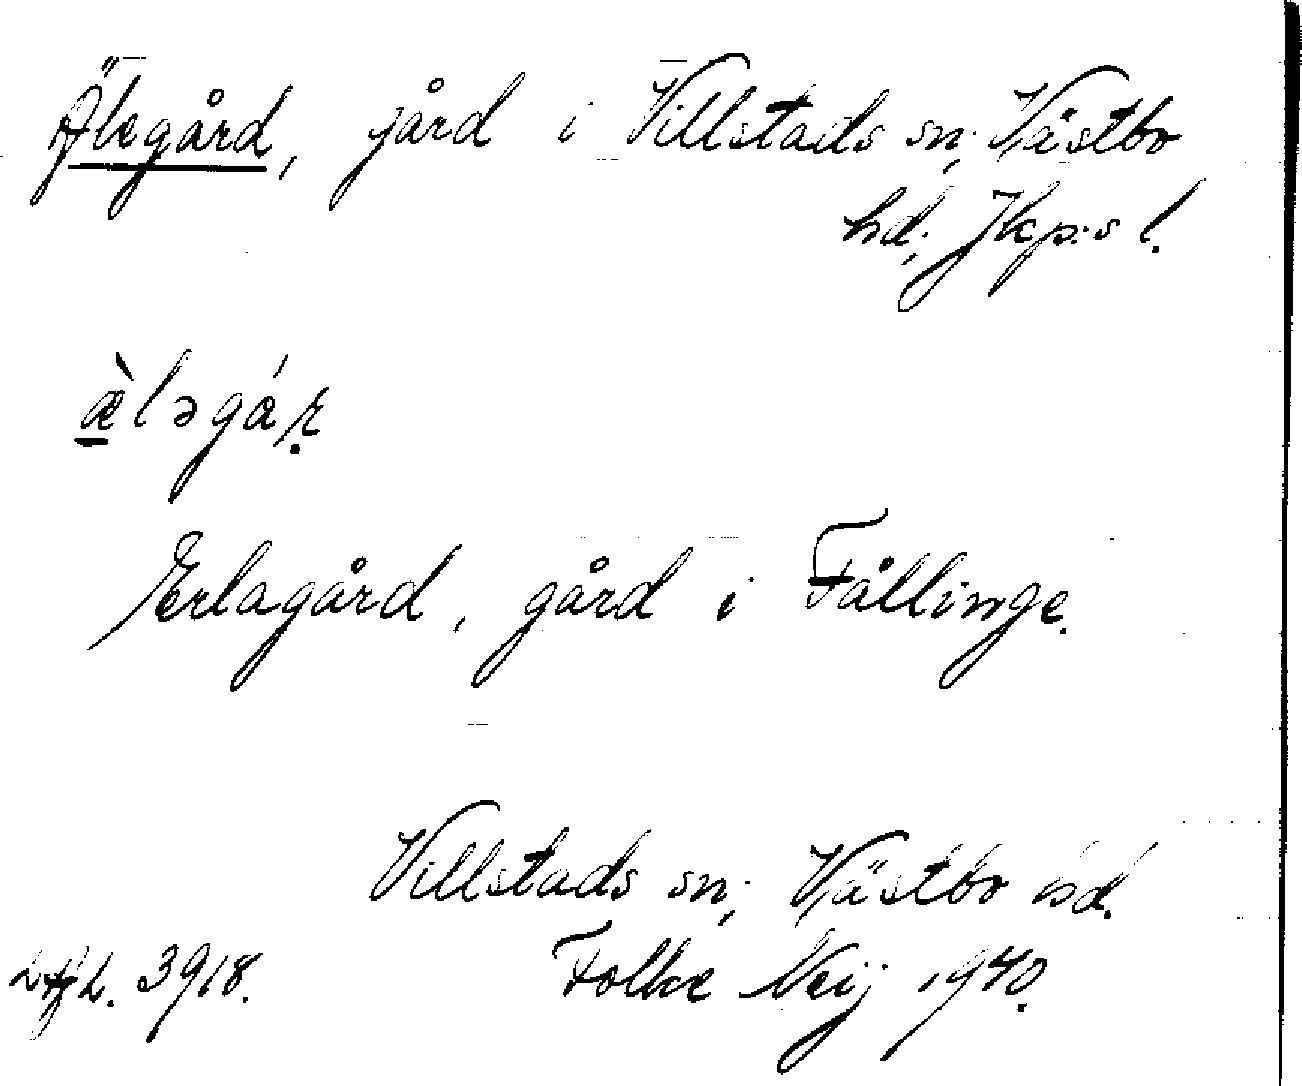 Älegård, gård i Villstads sn; Västbo
hd; Jkp:s l.
æ̀ləgáṛ
Erlagård, gård i Fållinge.
Villstads sn; Västbo hd.
3918. Folke Neij 1940.